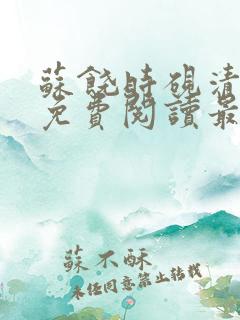 蘇饒時硯清
免費閱讀最
蘇不酥
未经同意禁止转载